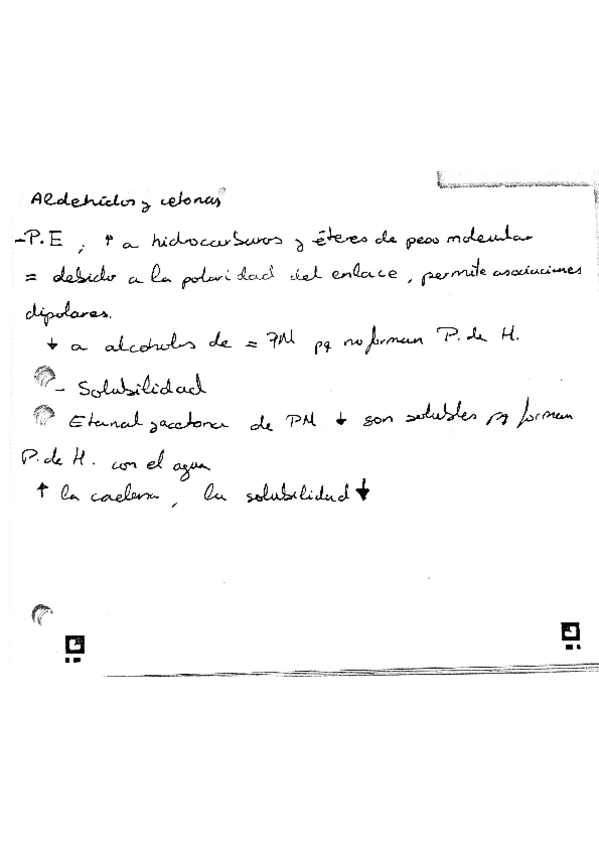 Aldehidos y cetonas
-P.E ; ↑ a hidrocarburos y éteres de peso molecular
= debido a la polaridad del enlace, permite asociaciones
dipolares.
↓ a alcoholes de = PM pq no forman P. de H.
- Solubilidad
Etanal y acetona de PM ↓ son solubles pq forman
P. de H. con el agua
↑ la cadena, la solubilidad ↓